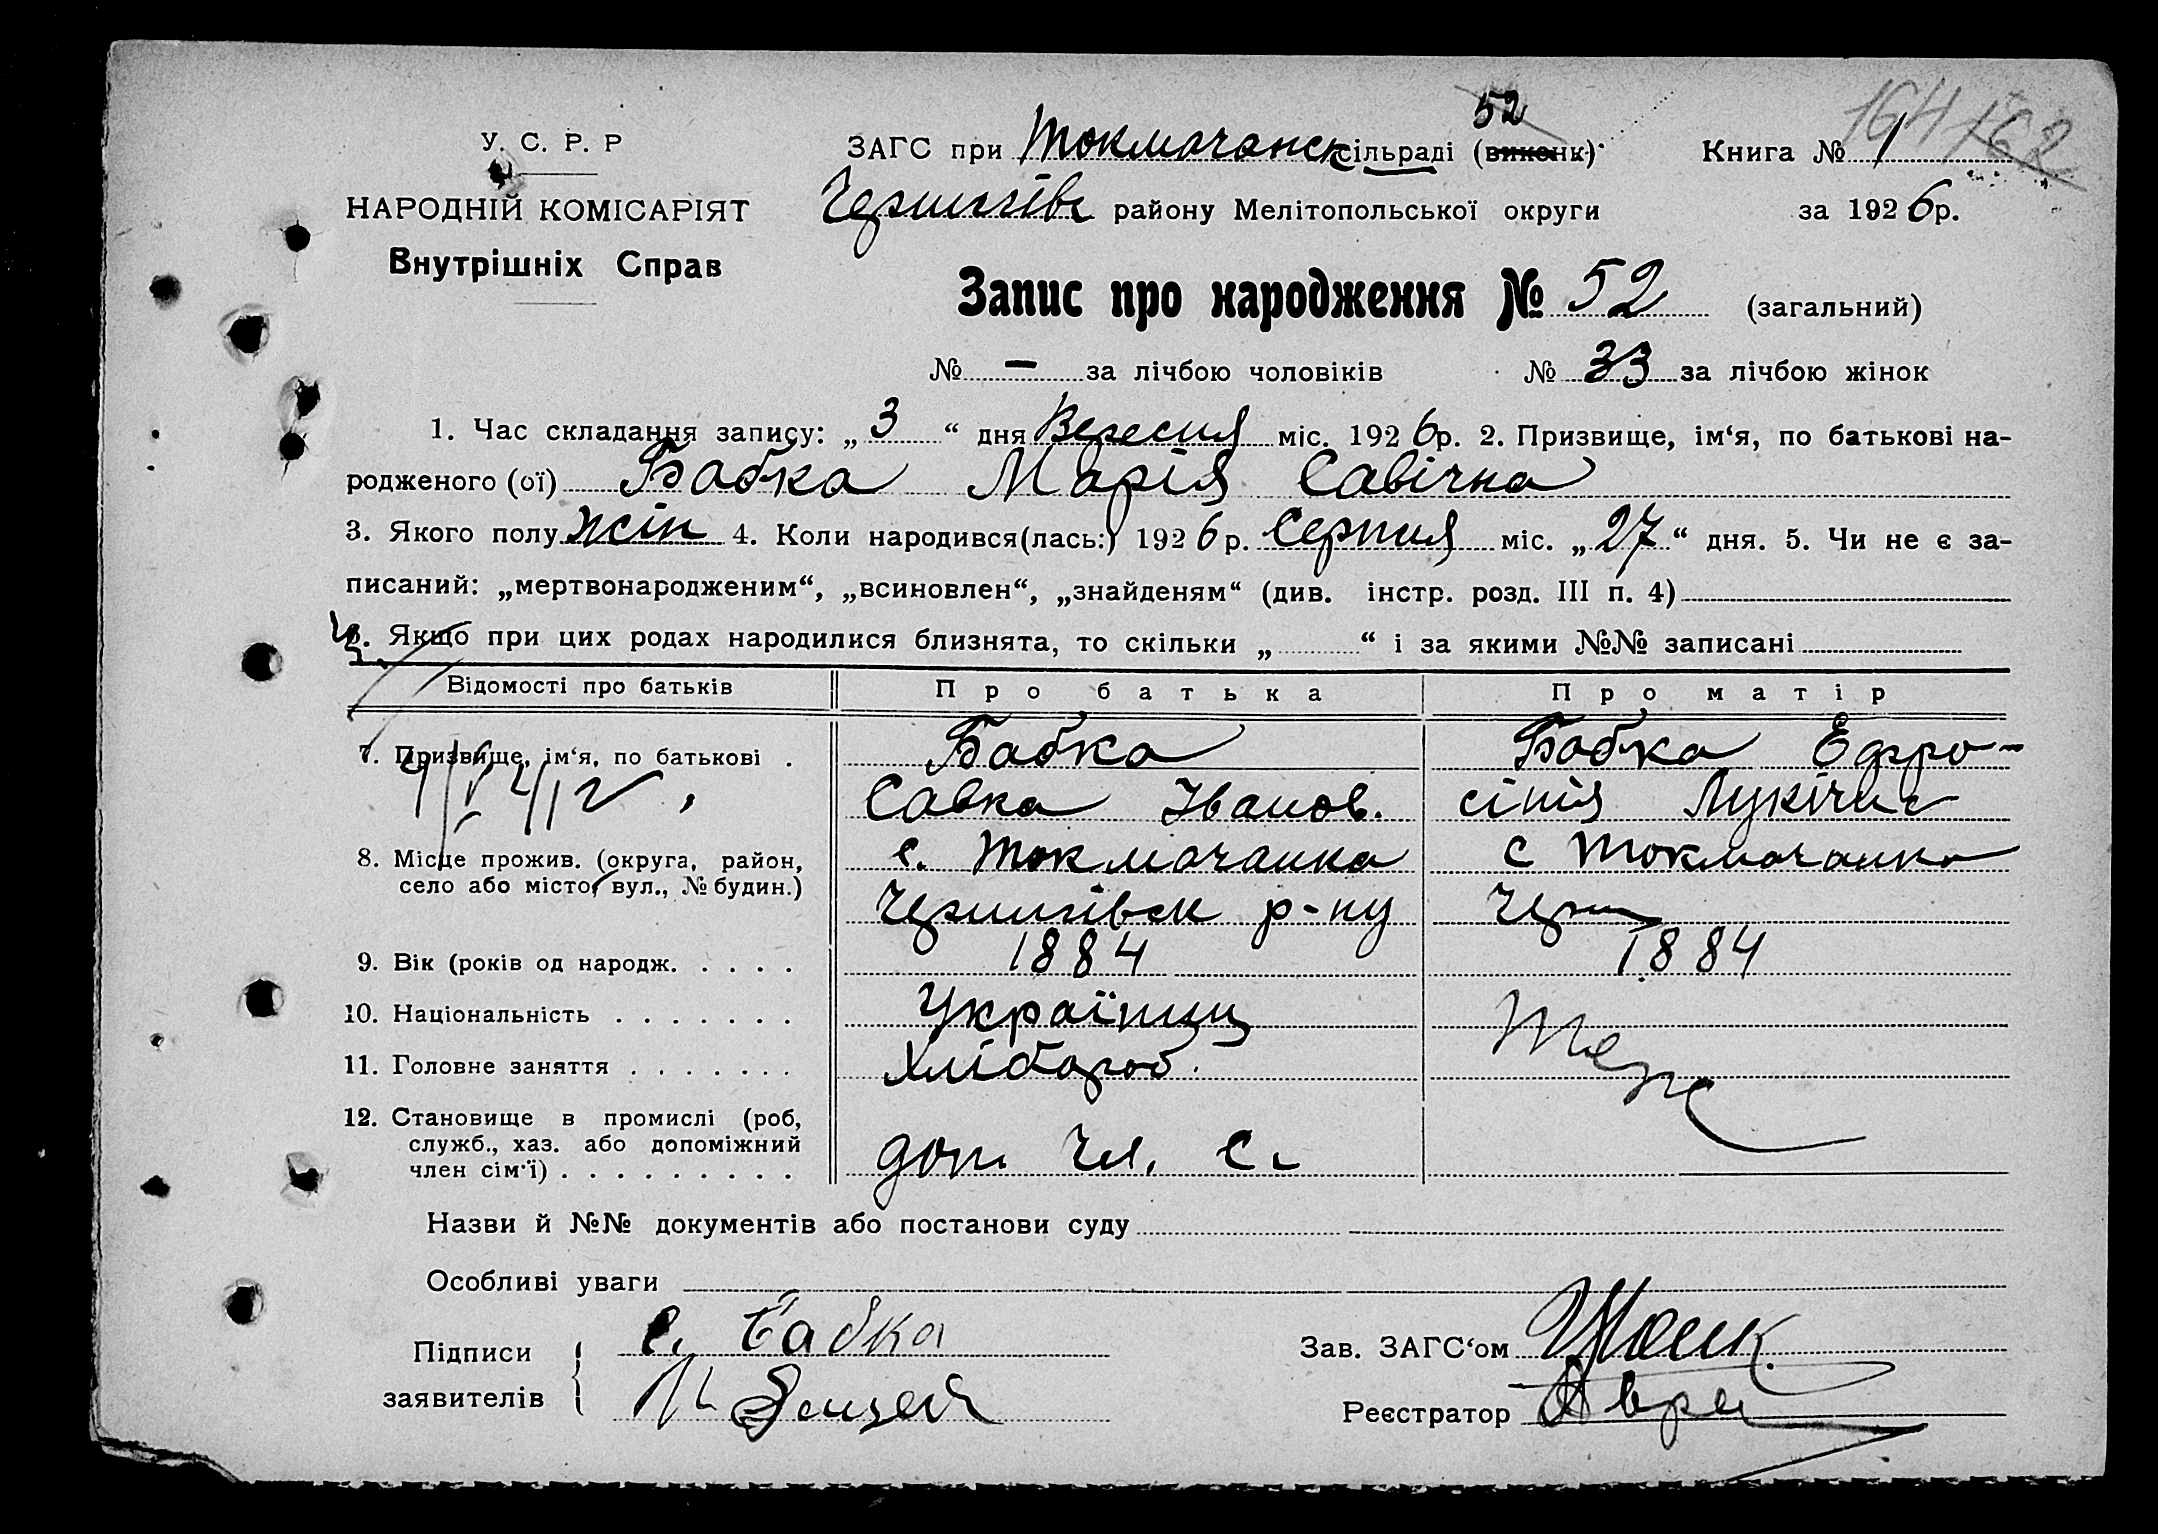 52
164 162
У. С. Р. Р
ЗАГС при Токмачанск сільраді (виконк)
Книга № 1
НАРОДНІЙ КОМІСАРІЯТ
Чернигівс району Мелітопольської округи
за 1926 р.
Внутрішніх Справ
Запис про народження № 52 (загальний)
№ — за лічбою чоловіків № 33 за лічбою жінок
1. Час складання запису: „3“ дня Вересня міс. 1926 р. 2. Призвище, ім‘я, по батькові на-
родженого (ої) Бабка Марія Савічна
3. Якого полу жін 4. Коли народився(лась:) 1926 р. Серпня міс. „27“ дня. 5. Чи не є за-
писаний: „мертвонародженим“, „всиновлен“, „знайденям“ (див. інстр. розд. III п. 4)
6. Якщо при цих родах народилися близнята, то скільки „ “ і за якими №№ записані
Відомості про батьків Про батька Про матір
7. Призвище, ім‘я, по батькові . Бабка Бабка Ефро-
Савка Іванов. сінія Лукічна
8. Місце прожив. (округа, район, с. Токмачанка с Токмачанка
село або місто, вул., № будин.)
Чернигівск р-ну Черн
9. Вік (років од народж. . . . . 1884 1884
10. Національність . . . . . . . Українці
11. Головне заняття . . . . . . . Хлібороб. Теж
12. Становище в промислі (роб,
служб., хаз. або допоміжний
член сім‘ї) . . . . . . . . . доп. чл. с.
Назви й №№ документів або постанови суду
Особливі уваги
Підписи
заявителів
С. Бабка
Зав. ЗАГС‘ом
Реєстратор